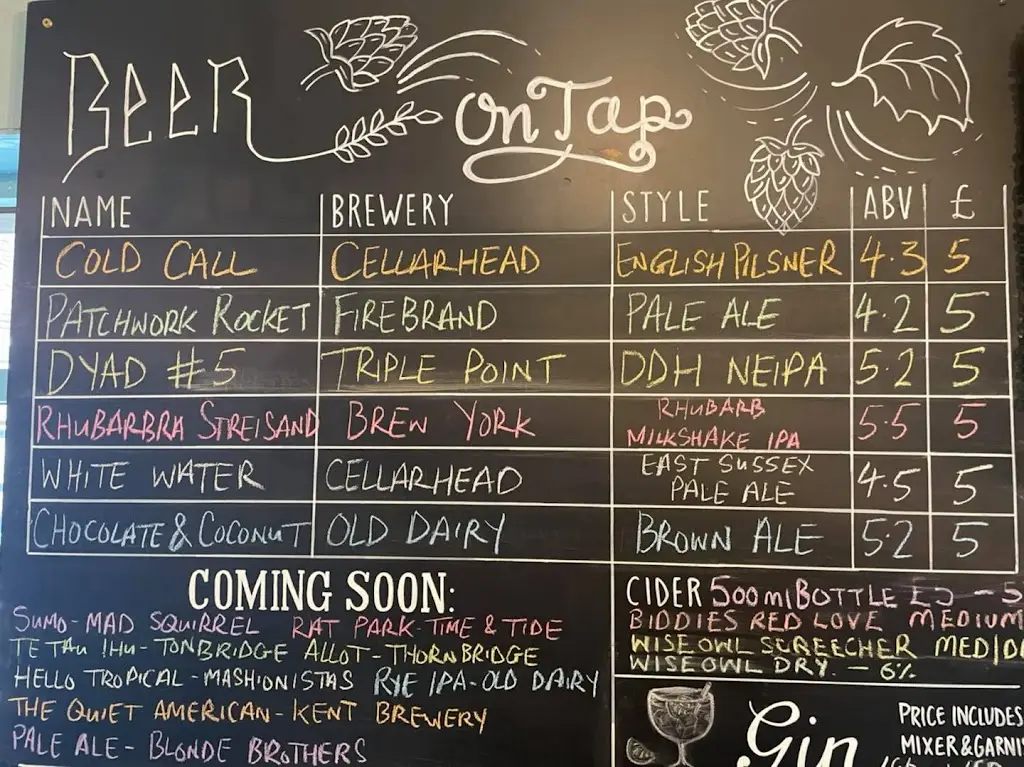 BEER on Tap
NAME BREWERY STYLE ABV £
COLD CALL CELLARHEAD ENGLISH PILSNER 4.3 5
PATCHWORK ROCKET FIREBRAND PALE ALE 4.2 5
DYAD #5 TRIPLE POINT DDH NEIPA 5.2 5
RHUBARBRA STREISAND BREW YORK RHUBARB MILKSHAKE IPA 5.5 5
WHITE WATER CELLARHEAD EAST SUSSEX PALE ALE 4.5 5
CHOCOLATE & COCONUT OLD DAIRY BROWN ALE 5.2 5
COMING SOON:
SUMO - MAD SQUIRREL RAT PARK - TIME & TIDE
TE TAU IHU - TONBRIDGE ALLOT - THORNBRIDGE
HELLO TROPICAL - MASHIONISTAS RYE IPA - OLD DAIRY
THE QUIET AMERICAN - KENT BREWERY
PALE ALE - BLONDE BROTHERS
CIDER 500ml BOTTLE
BIDDIES RED LOVE MEDIUM
WISEOWL SCREECHER
WISEOWL DRY. - 6%
Gin
PRICE INCLUDES
MIXER & GARNI